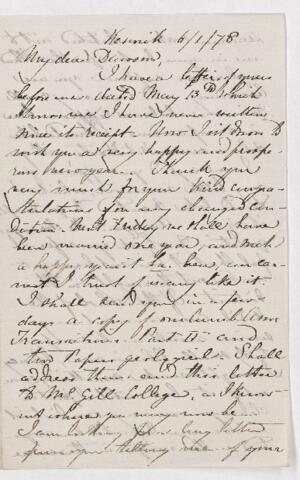 Keswick 6/1/78
My dear Dawson,
I have a letter of yours
before me dated May 13th which
shows me I have never written
since its receipt. Now I sit down to
wish you a very happy and prosp-
erous new year. Thank you
very much for your kind congra-
tulations for my changed con-
dition. Next Tuesday we shall have
been married one year, and such
a happy year it has been, an ear-
nest I trust of many like it.
I shall send you in a few
days a copy of our Cumb. Assoc.
Transactions Part II and
two Papers geological. Shall
address them and this letter
to McGill College, as I know
not where you may now be.
I am looking for a long letter
from you telling me of your